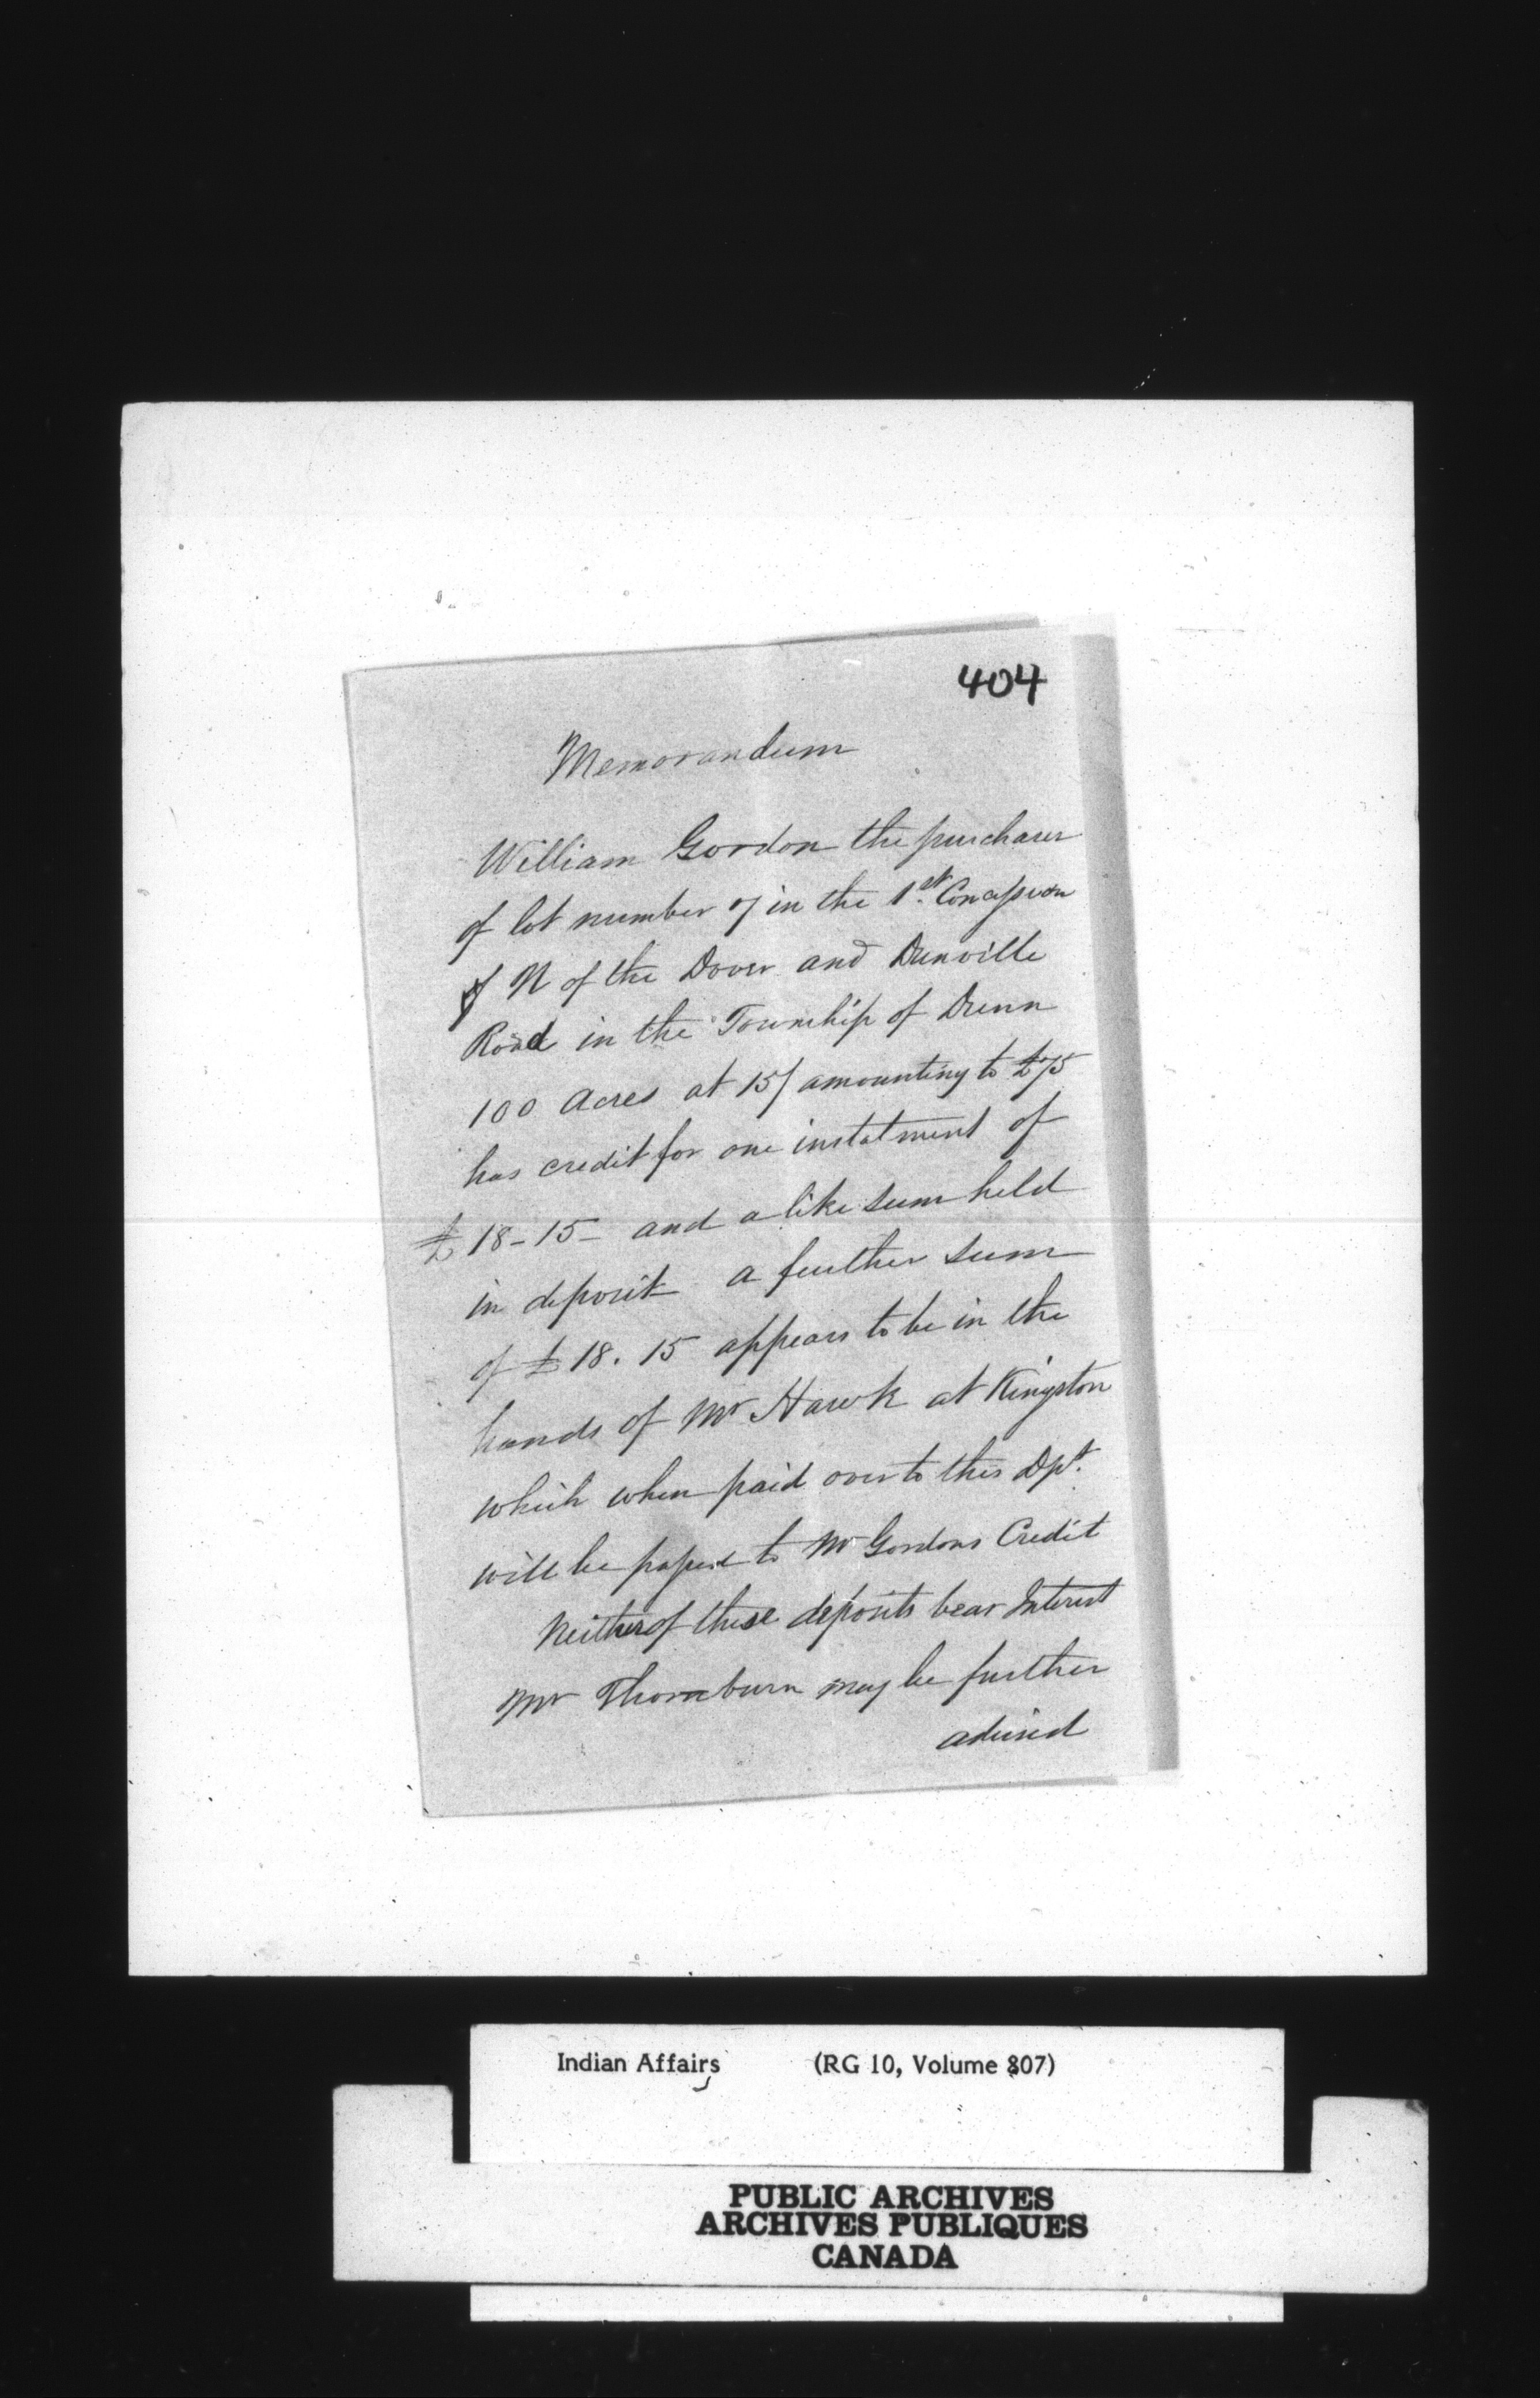 404
Memorandum
William Gordon the purchaser
of lot number 7 in the 1st. Concession
of N of the Dover and Dunville
Road in the Township of Dunn
100 Acres at 15/ amounting to £75
has credit for one instalment of
£18-15- and a like sum held
in deposit a further sum
of £18.15 appears to be in the
hands of Mr Hawk at Kingston
which when paid over to this Dpt.
will be passed to Mr Gordons Credit
Neither of these deposits bear Interest
Mr Thornburn may be further
advised
Indian Affairs (RG 10, Volume 807)
PUBLIC ARCHIVES
ARCHIVES PUBLIQUES
CANADA